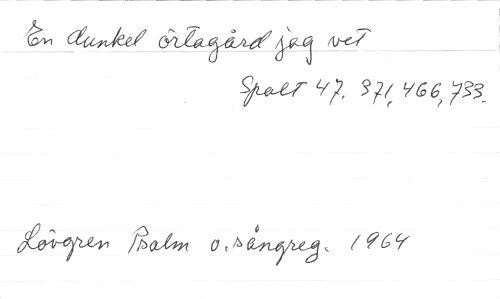 En dunkel örtagård jag vet
Spalt 47. 371, 466, 733.
Lövgren Psalm o. sångreg. 1964